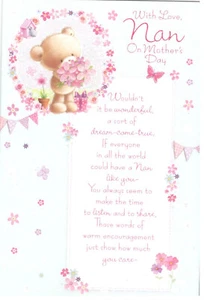 With Love,
Nan
On Mother's
Day
Wouldn't
it be wonderful,
a sort of
dream-come-true,
If everyone
in all the world
could have a Nan
like you~
You always seem
to make the time
to listen and to share,
Those words of
warm encouragement
just show how much
you care~